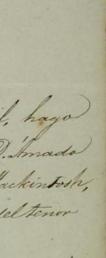 l, hago
D. Amado
Mackintosh,
del tenor